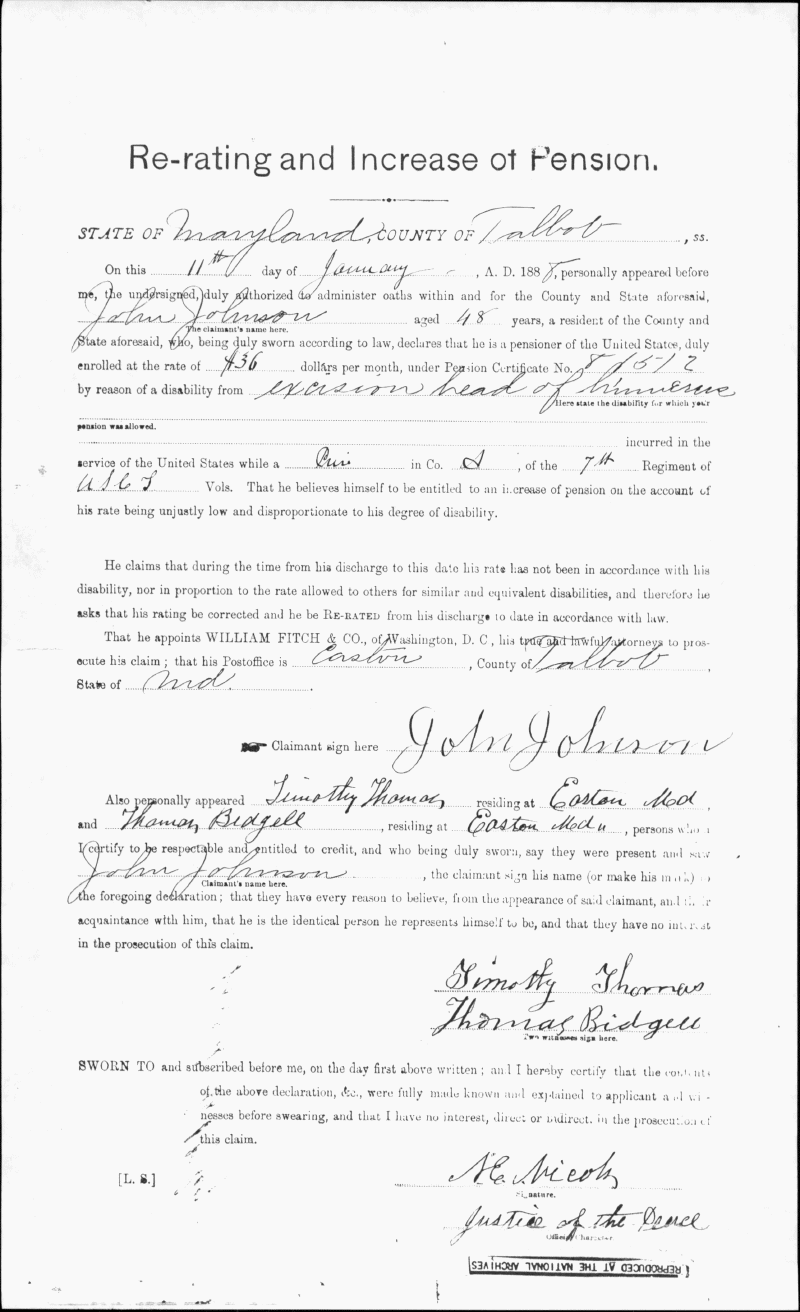 Re-rating and Increase of Pension.
STATE OF Maryland, COUNTY OF Talbot, ss.
On this 11th day of January, A. D. 1888, personally appeared before
me, the undersigned, duly authorized to administer oaths within and for the County and State aforesaid,
John Johnson aged 48 years, a resident of the County and
The claimant's name here.
State aforesaid, who, being duly sworn according to law, declares that he is a pensioner of the United States, duly
enrolled at the rate of $36 dollars per month, under Pension Certificate No. 8 1512
by reason of a disability from excision head of humerus
Here state the disability for which your
pension was allowed.
incurred in the
service of the United States while a Priv in Co. A, of the 7th Regiment of
U S C T Vols. That he believes himself to be entitled to an increase of pension on the account of
his rate being unjustly low and disproportionate to his degree of disability.
He claims that during the time from his discharge to this date his rate has not been in accordance with his
disability, nor in proportion to the rate allowed to others for similar and equivalent disabilities, and therefore he
asks that his rating be corrected and he be RE-RATED from his discharge to date in accordance with law.
That he appoints WILLIAM FITCH & CO., of Washington, D. C, his true and lawful attorneys to pros-
ecute his claim; that his Postoffice is Easton, County of Talbot,
State of Md.
Claimant sign here John Johnson
Also personally appeared Timothy Thomas residing at Easton Md,
and Thomas Bidgell, residing at Easton Md, persons who
I certify to be respectable and entitled to credit, and who being duly sworn, say they were present and saw
John Johnson, the claimant sign his name (or make his mark) to
Claimant's name here.
the foregoing declaration; that they have every reason to believe, from the appearance of said claimant, and their
acquaintance with him, that he is the identical person he represents himself to be, and that they have no interest
in the prosecution of this claim.
Timothy Thomas
Thomas Bidgell
Two witnesses sign here.
SWORN TO and subscribed before me, on the day first above written; and I hereby certify that the contents
of the above declaration, &c., were fully made known and explained to applicant and wit-
nesses before swearing, and that I have no interest, direct or indirect, in the prosecution of
this claim.
[L. S.]
Signature.
Justice of the Peace
Official Character.
REPRODUCED AT THE NATIONAL ARCHIVES